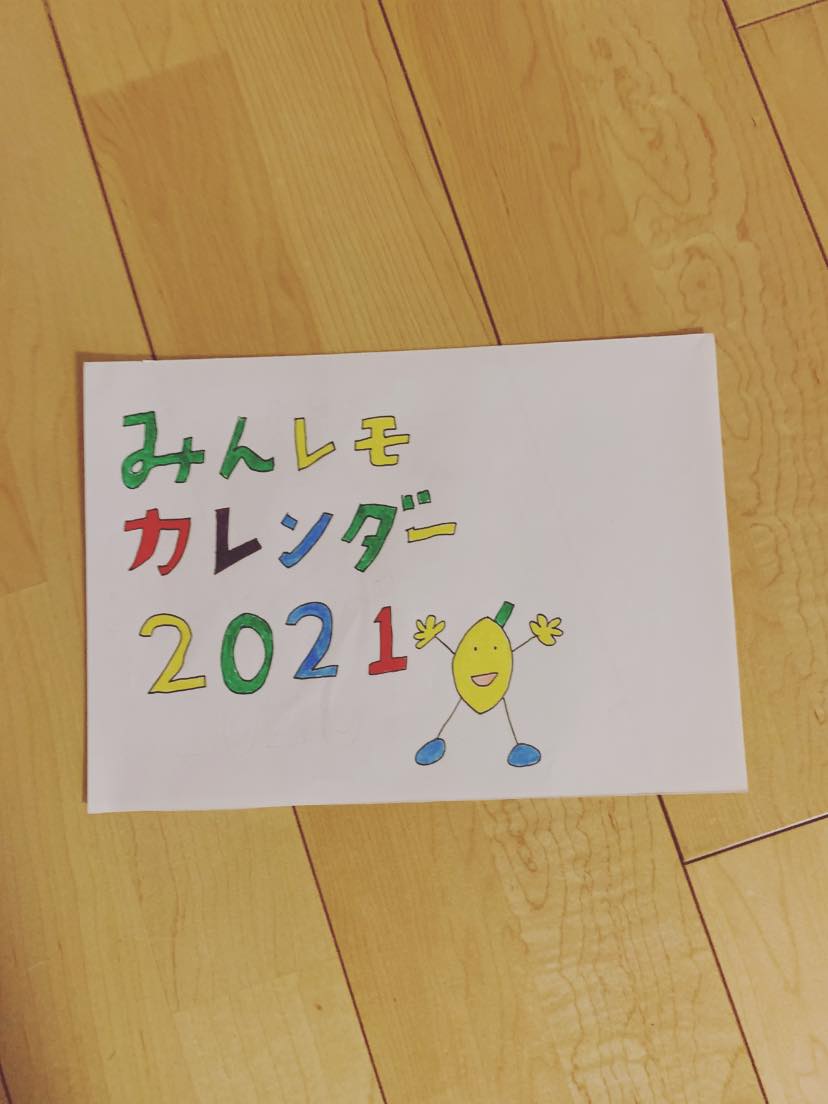 みんレモ
カレンダー
2021